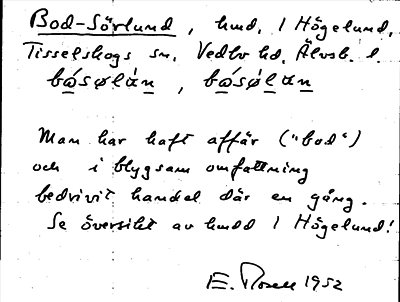 Bod-Sörlund, hmd. 1 Högelund,
Tisselskogs sn. Vedbo hd. Älvsb. l.
bǿsølàn, bǿsǿlàn
Man har haft affär ("bod")
och i blygsam omfattning
bedrivit handel där en gång.
Se översikt av hmdd 1 Högelund!
E. Rosell 1952